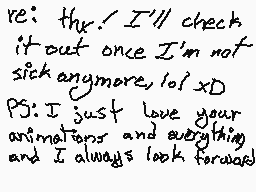 re: thx! I'll check
it out once I'm not
sick anymore, lol xD
PS: I just love your
animations and everything
and I always look forward